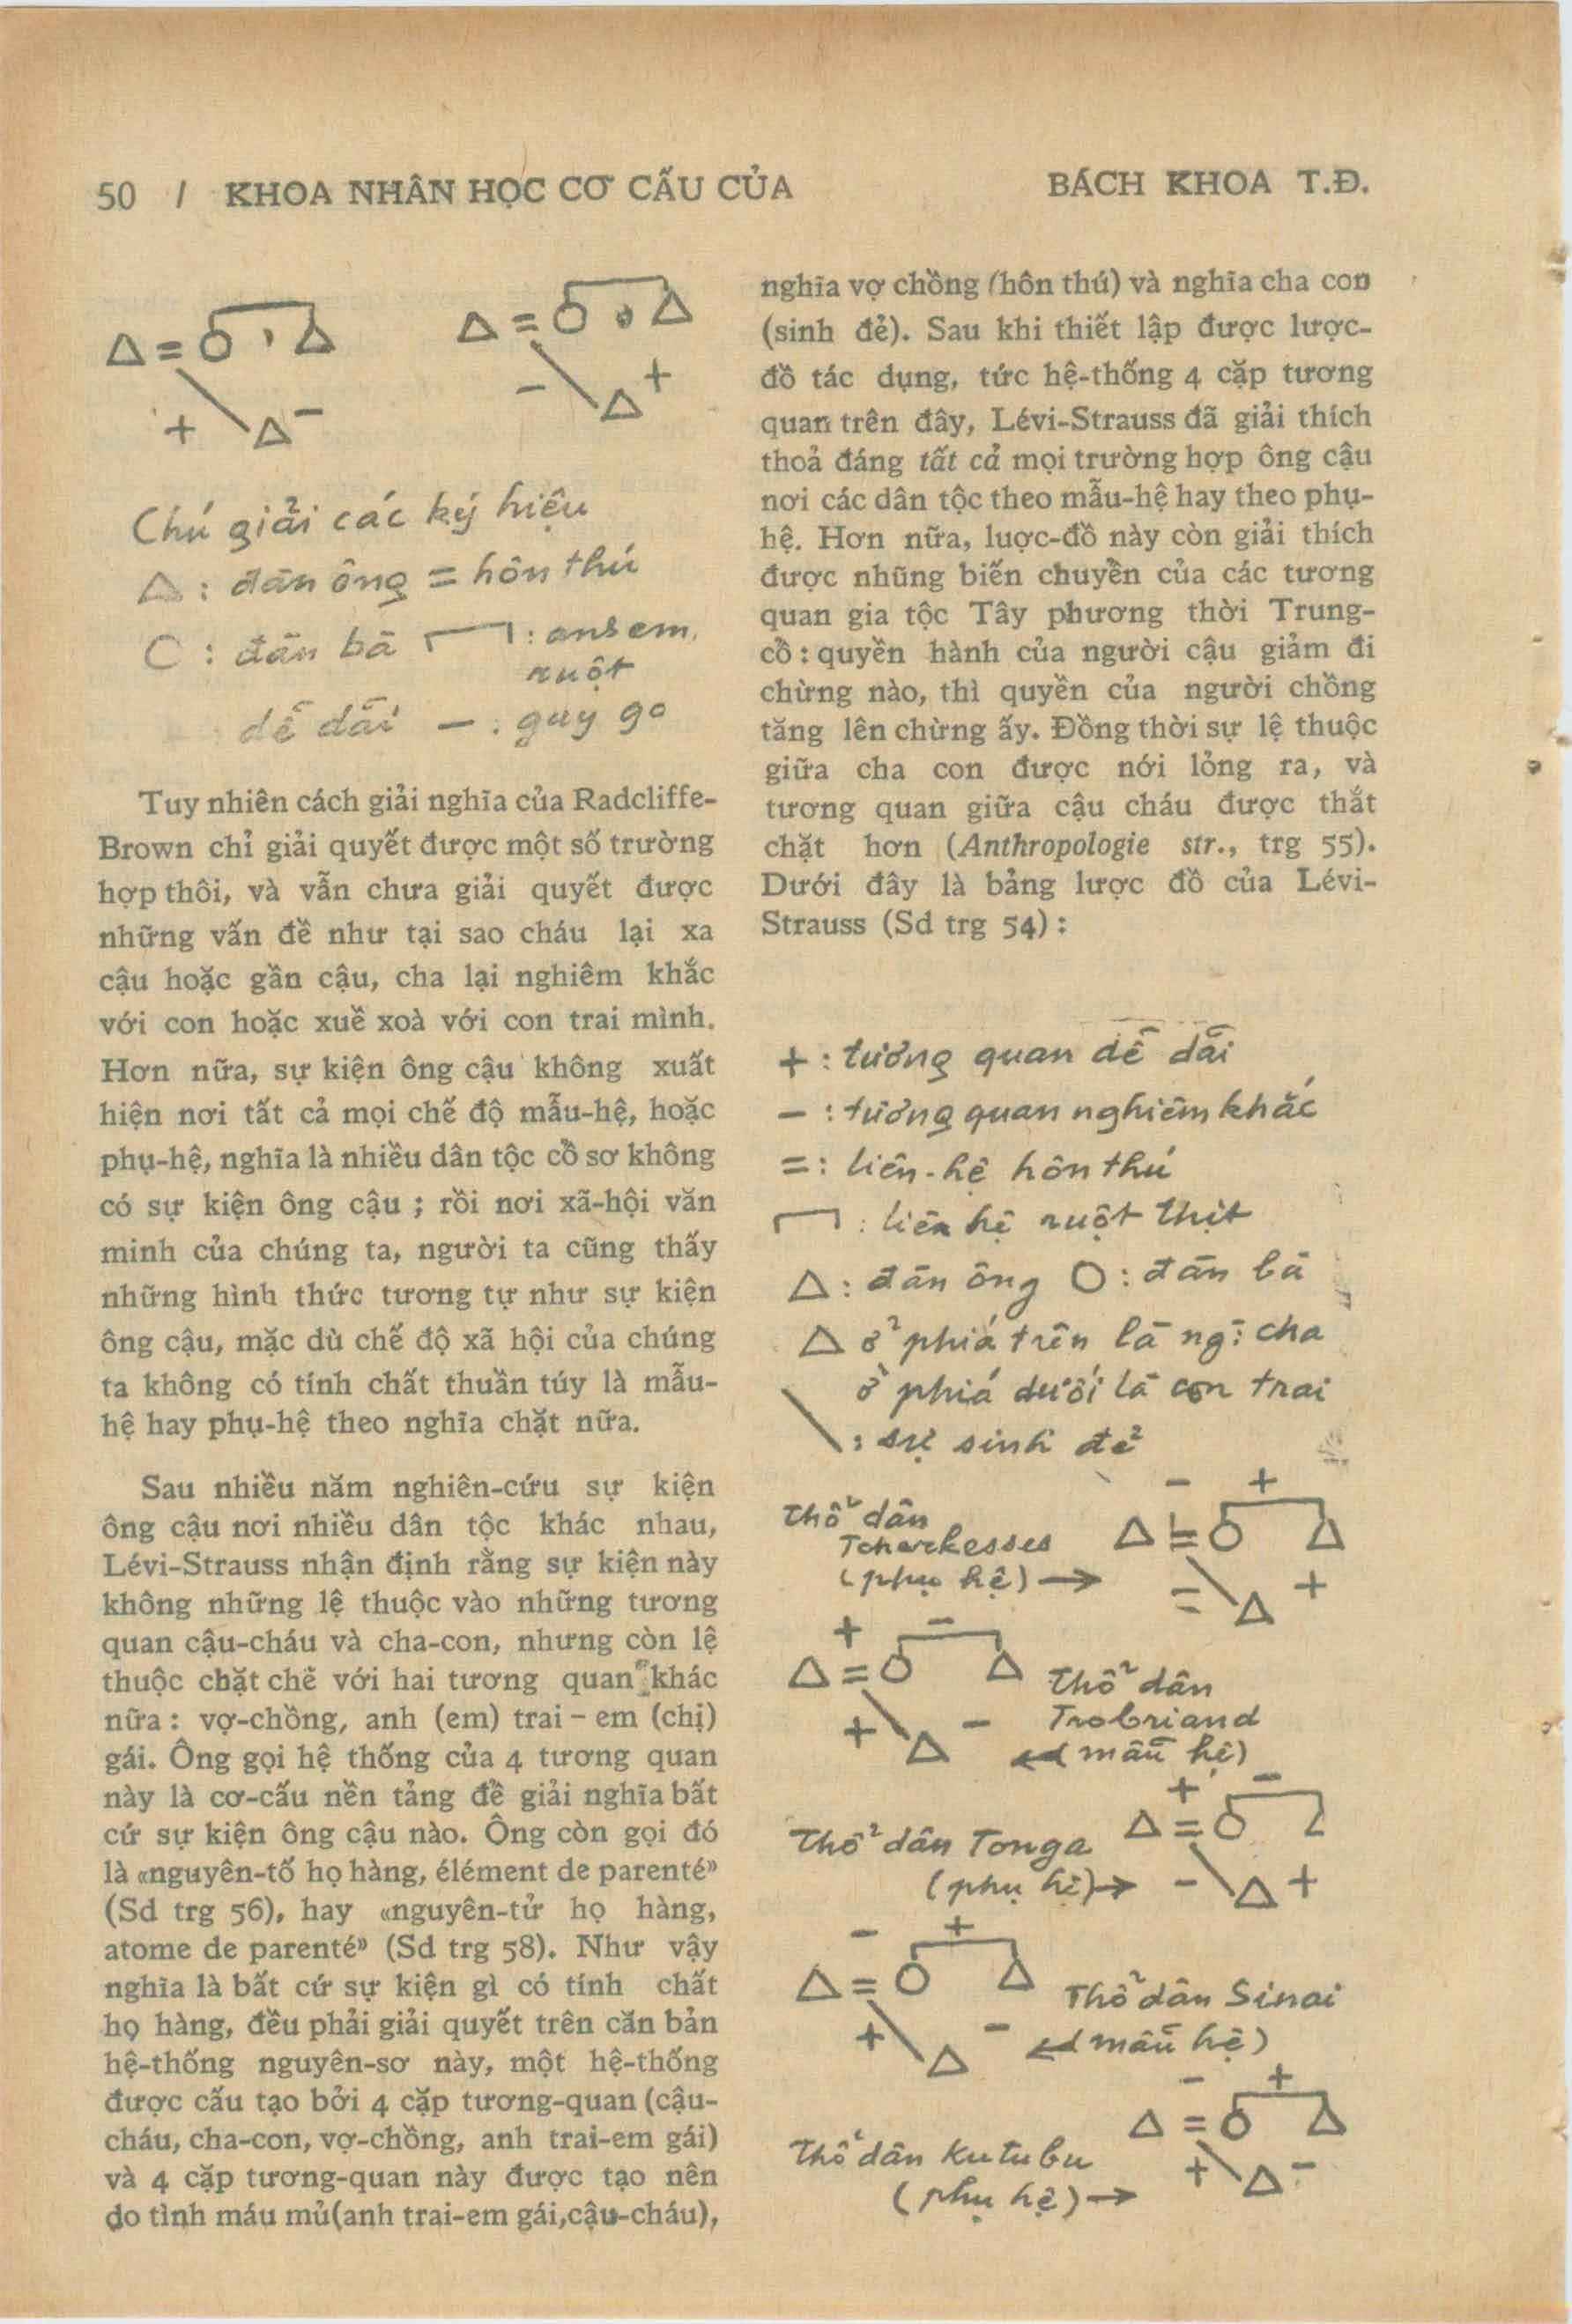 50 / KHOA NHÂN HỌC CƠ CẤU CỦA BÁCH KHOA T.Đ.
Δ = O , Δ
+ Δ −
Δ = O , Δ
− Δ +
Chú giải các ký hiệu
Δ : đàn ông = hôn thú
C : đàn bà ┌─┐ : anh em
ruột
dễ dãi — : gay go
Tuy nhiên cách giải nghĩa của Radcliffe-
Brown chỉ giải quyết được một số trường
hợp thôi, và vẫn chưa giải quyết được
những vấn đề như tại sao cháu lại xa
cậu hoặc gần cậu, cha lại nghiêm khắc
với con hoặc xuề xoà với con trai mình.
Hơn nữa, sự kiện ông cậu không xuất
hiện nơi tất cả mọi chế độ mẫu-hệ, hoặc
phụ-hệ, nghĩa là nhiều dân tộc cổ sơ không
có sự kiện ông cậu ; rồi nơi xã-hội văn
minh của chúng ta, người ta cũng thấy
những hình thức tương tự như sự kiện
ông cậu, mặc dù chế độ xã hội của chúng
ta không có tính chất thuần túy là mẫu-
hệ hay phụ-hệ theo nghĩa chặt nữa.
Sau nhiều năm nghiên-cứu sự kiện
ông cậu nơi nhiều dân tộc khác nhau,
Lévi-Strauss nhận định rằng sự kiện này
không những lệ thuộc vào những tương
quan cậu-cháu và cha-con, nhưng còn lệ
thuộc chặt chẽ với hai tương quan khác
nữa : vợ-chồng, anh (em) trai - em (chị)
gái. Ông gọi hệ thống của 4 tương quan
này là cơ-cấu nền tảng để giải nghĩa bất
cứ sự kiện ông cậu nào. Ông còn gọi đó
là «nguyên-tố họ hàng, élément de parenté»
(Sd trg 56), hay «nguyên-tử họ hàng,
atome de parenté» (Sd trg 58). Như vậy
nghĩa là bất cứ sự kiện gì có tính chất
họ hàng, đều phải giải quyết trên căn bản
hệ-thống nguyên-sơ này, một hệ-thống
được cấu tạo bởi 4 cặp tương-quan (cậu-
cháu, cha-con, vợ-chồng, anh trai-em gái)
và 4 cặp tương-quan này được tạo nên
do tình máu mủ(anh trai-em gái,cậu-cháu),
nghĩa vợ chồng (hôn thú) và nghĩa cha con
(sinh đẻ). Sau khi thiết lập được lược-
đồ tác dụng, tức hệ-thống 4 cặp tương
quan trên đây, Lévi-Strauss đã giải thích
thoả đáng tất cả mọi trường hợp ông cậu
nơi các dân tộc theo mẫu-hệ hay theo phụ-
hệ. Hơn nữa, luợc-đồ này còn giải thích
được nhũng biến chuyển của các tương
quan gia tộc Tây phương thời Trung-
cổ : quyền hành của người cậu giảm đi
chừng nào, thì quyền của người chồng
tăng lên chừng ấy. Đồng thời sự lệ thuộc
giữa cha con được nới lỏng ra, và
tương quan giữa cậu cháu được thắt
chặt hơn (Anthropologie str., trg 55).
Dưới đây là bảng lược đồ của Lévi-
Strauss (Sd trg 54) :
+ : tương quan dễ dãi
— : tương quan nghiêm khắc
= : liên-hệ hôn thú
┌─┐ : liên hệ ruột thịt
Δ : đàn ông O : đàn bà
Δ ở phiá trên là ng: cha
ở phiá dưới là con trai
\ : sự sinh đẻ
Thổ dân
Tcherkesses
(phụ hệ) →
− +
Δ = O Δ
= Δ +
+ −
Δ = O Δ
+ Δ −
Thổ dân
Trobriand
← (mẫu hệ)
Thổ dân Tonga
(phụ hệ) →
+ −
Δ = O Δ
− Δ +
− +
Δ = O Δ
+ Δ −
Thổ dân Sinai
← (mẫu hệ)
Thổ dân Kutubu
(phụ hệ) →
− +
Δ = O Δ
+ Δ −